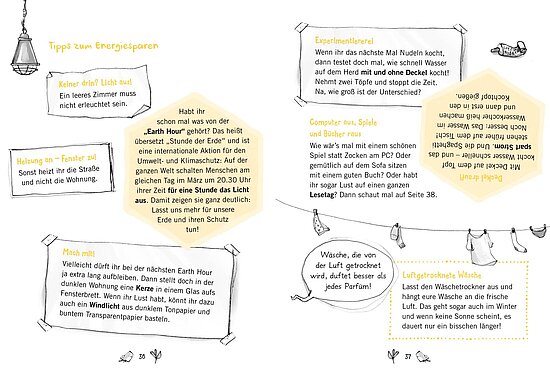 Tipps zum Energiesparen
Keiner drin? Licht aus!
Ein leeres Zimmer muss
nicht erleuchtet sein.
Heizung an – Fenster zu!
Sonst heizt ihr die Straße
und nicht die Wohnung.
Habt ihr
schon mal was von der
„Earth Hour“ gehört? Das heißt
übersetzt „Stunde der Erde“ und ist
eine internationale Aktion für den
Umwelt- und Klimaschutz: Auf der
ganzen Welt schalten Menschen am
gleichen Tag im März um 20.30 Uhr
ihrer Zeit für eine Stunde das Licht
aus. Damit zeigen sie ganz deutlich:
Lasst uns mehr für unsere
Erde und ihren Schutz
tun!
Mach mit!
Vielleicht dürft ihr bei der nächsten Earth Hour
ja extra lang aufbleiben. Dann stellt doch in der
dunklen Wohnung eine Kerze in einem Glas aufs
Fensterbrett. Wenn ihr Lust habt, könnt ihr dazu
auch ein Windlicht aus dunklem Tonpapier und
buntem Transparentpapier basteln.
36
Experimentiererei
Wenn ihr das nächste Mal Nudeln kocht,
dann testet doch mal, wie schnell Wasser
auf dem Herd mit und ohne Deckel kocht!
Nehmt zwei Töpfe und stoppt die Zeit.
Na, wie groß ist der Unterschied?
Deckel drauf!
Mit Deckel auf dem Topf
kocht Wasser schneller – und das
spart Strom. Und die Spaghetti
stehen früher auf dem Tisch!
Noch besser: Das Wasser im
Wasserkocher heiß machen
und dann erst in den
Kochtopf gießen.
Computer aus, Spiele
und Bücher raus
Wie wär's mal mit einem schönen
Spiel statt Zocken am PC? Oder
gemütlich auf dem Sofa sitzen
mit einem guten Buch? Oder habt
ihr sogar Lust auf einen ganzen
Lesetag? Dann schaut mal auf Seite 38.
Wäsche, die von
der Luft getrocknet
wird, duftet besser als
jedes Parfüm!
Luftgetrocknete Wäsche
Lasst den Wäschetrockner aus und
hängt eure Wäsche an die frische
Luft. Das geht sogar auch im Winter
und wenn keine Sonne scheint, es
dauert nur ein bisschen länger!
37